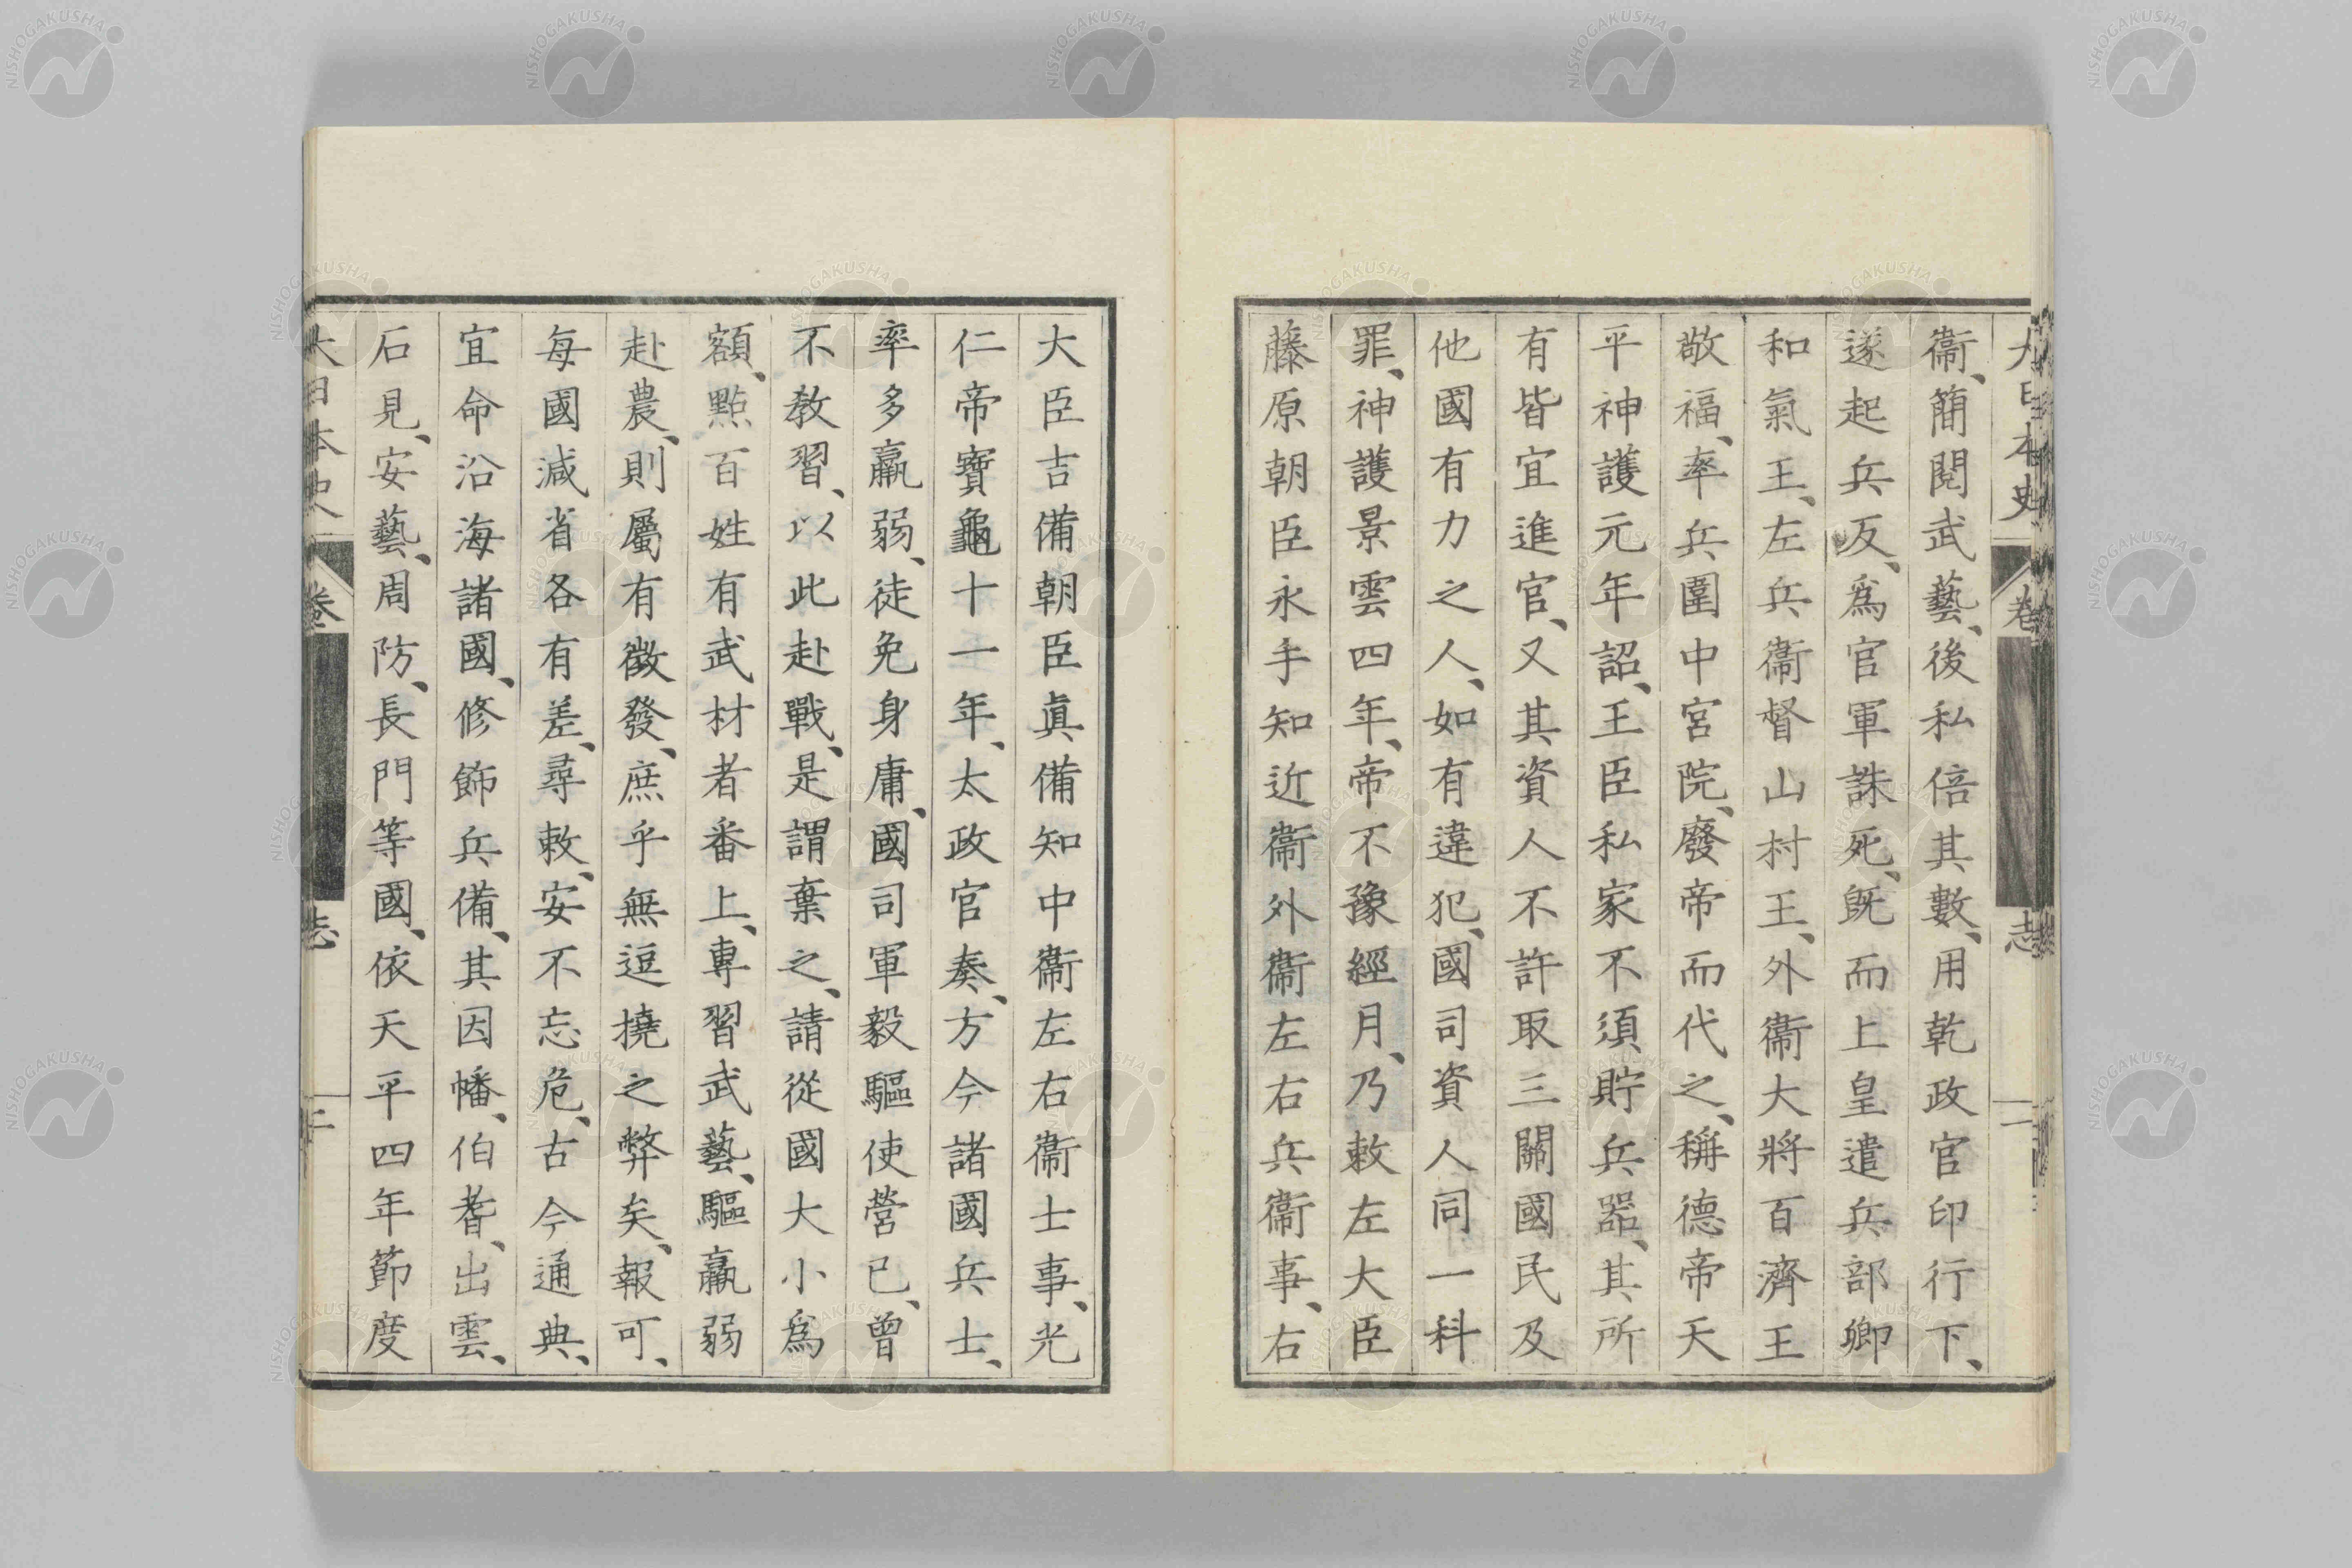 大日本史 卷 志
衞、簡閲武藝、後私倍其數、用乾政官印行下、
遂起兵反、爲官軍誅死、既而上皇遣兵部卿
和氣王、左兵衞督山村王、外衞大將百濟王
敬福、率兵圍中宮院、廢帝而代之、稱德帝天
平神護元年詔、王臣私家不須貯兵器、其所
有皆宜進官、又其資人不許取三關國民及
他國有力之人、如有違犯、國司資人同一科
罪、神護景雲四年、帝不豫經月、乃敕左大臣
藤原朝臣永手知近衞外衞左右兵衞事、右
大臣吉備朝臣眞備知中衞左右衞士事、光
仁帝寶龜十一年、太政官奏、方今諸國兵士、
率多羸弱、徒免身庸、國司軍毅驅使營已、曾
不教習、以此赴戰、是謂棄之、請從國大小爲
額、點百姓有武材者番上、專習武藝、驅羸弱
赴農、則屬有徵發、庶乎無逗撓之弊矣、報可、
每國減省各有差、尋敕、安不忘危、古今通典、
宜命沿海諸國、修飾兵備、其因幡、伯耆、出雲、
石見、安藝、周防、長門等國、依天平四年節度
大日本史 卷 志
NISHOGAKUSHA